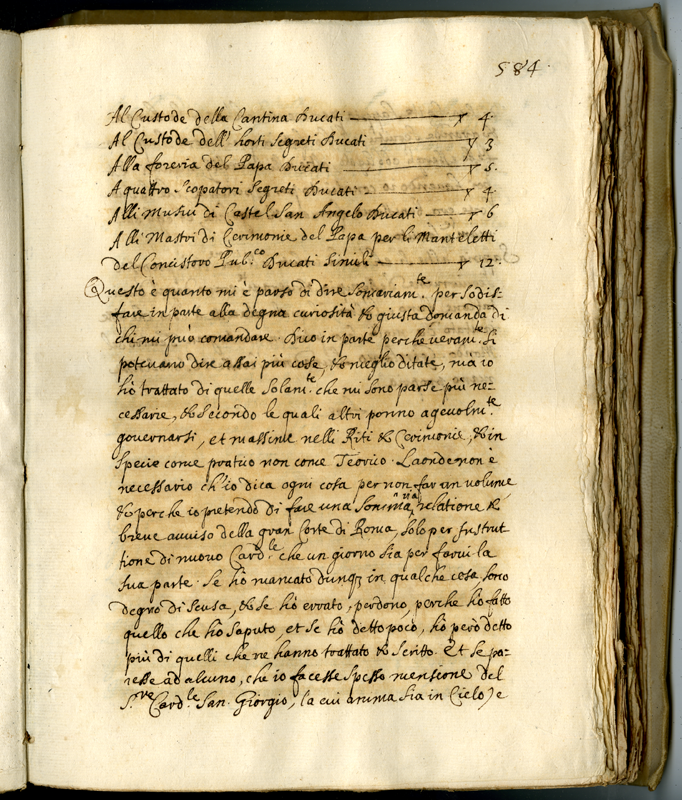 584.
Al Custode della Cantina Ducati ——— 4.
Al Custode dell' horti segreti Ducati ——— 3
Alla foreria del Papa Ducati ——— 5.
A quattro scopatori segreti Ducati ——— 4.
Alli Musici di Castel San Angelo Ducati ——— 6
Alli Mastri di Cerimonie del Papa per li Manteletti
del Concistoro Pub.co Ducati simili ——— 12.
Questo è quanto mi è parso di dire somariam.te per sodis-
fare in parte alla degna curiosità & giusta domanda di
chi mi può comandare. Dico in parte perche veram.te si
potevano dire assai più cose, & meglio ditate, mà io
hò trattato di quelle solam.te che mi sono parse più ne-
cessarie, & secondo le quali altri ponno agevolm.te
governarsi, et massime nelli Riti & Cerimonie, & in
specie come pratico non come Teorico. Laonde non è
necessario ch'io dica ogni cosa per non far un volume
& perche io pretendo di fare una sommaria relatione &
breve avviso della gran Corte di Roma, solo per instrut
tione di nuovo Card.le che un giorno sia per farvi la
sua parte. Se hò mancato dunq; in qualche cosa sono
degno di scusa, & se hò errato, perdono, perche hò fatto
quello che hò saputo, et se hò detto poco, hò però detto
più di quelli che ne hanno trattato & scritto. Et se pa-
resse ad alcuno, che io facesse spesso mentione del
S.re Card.le San. Giorgio, (la cui anima sia in Cielo) e